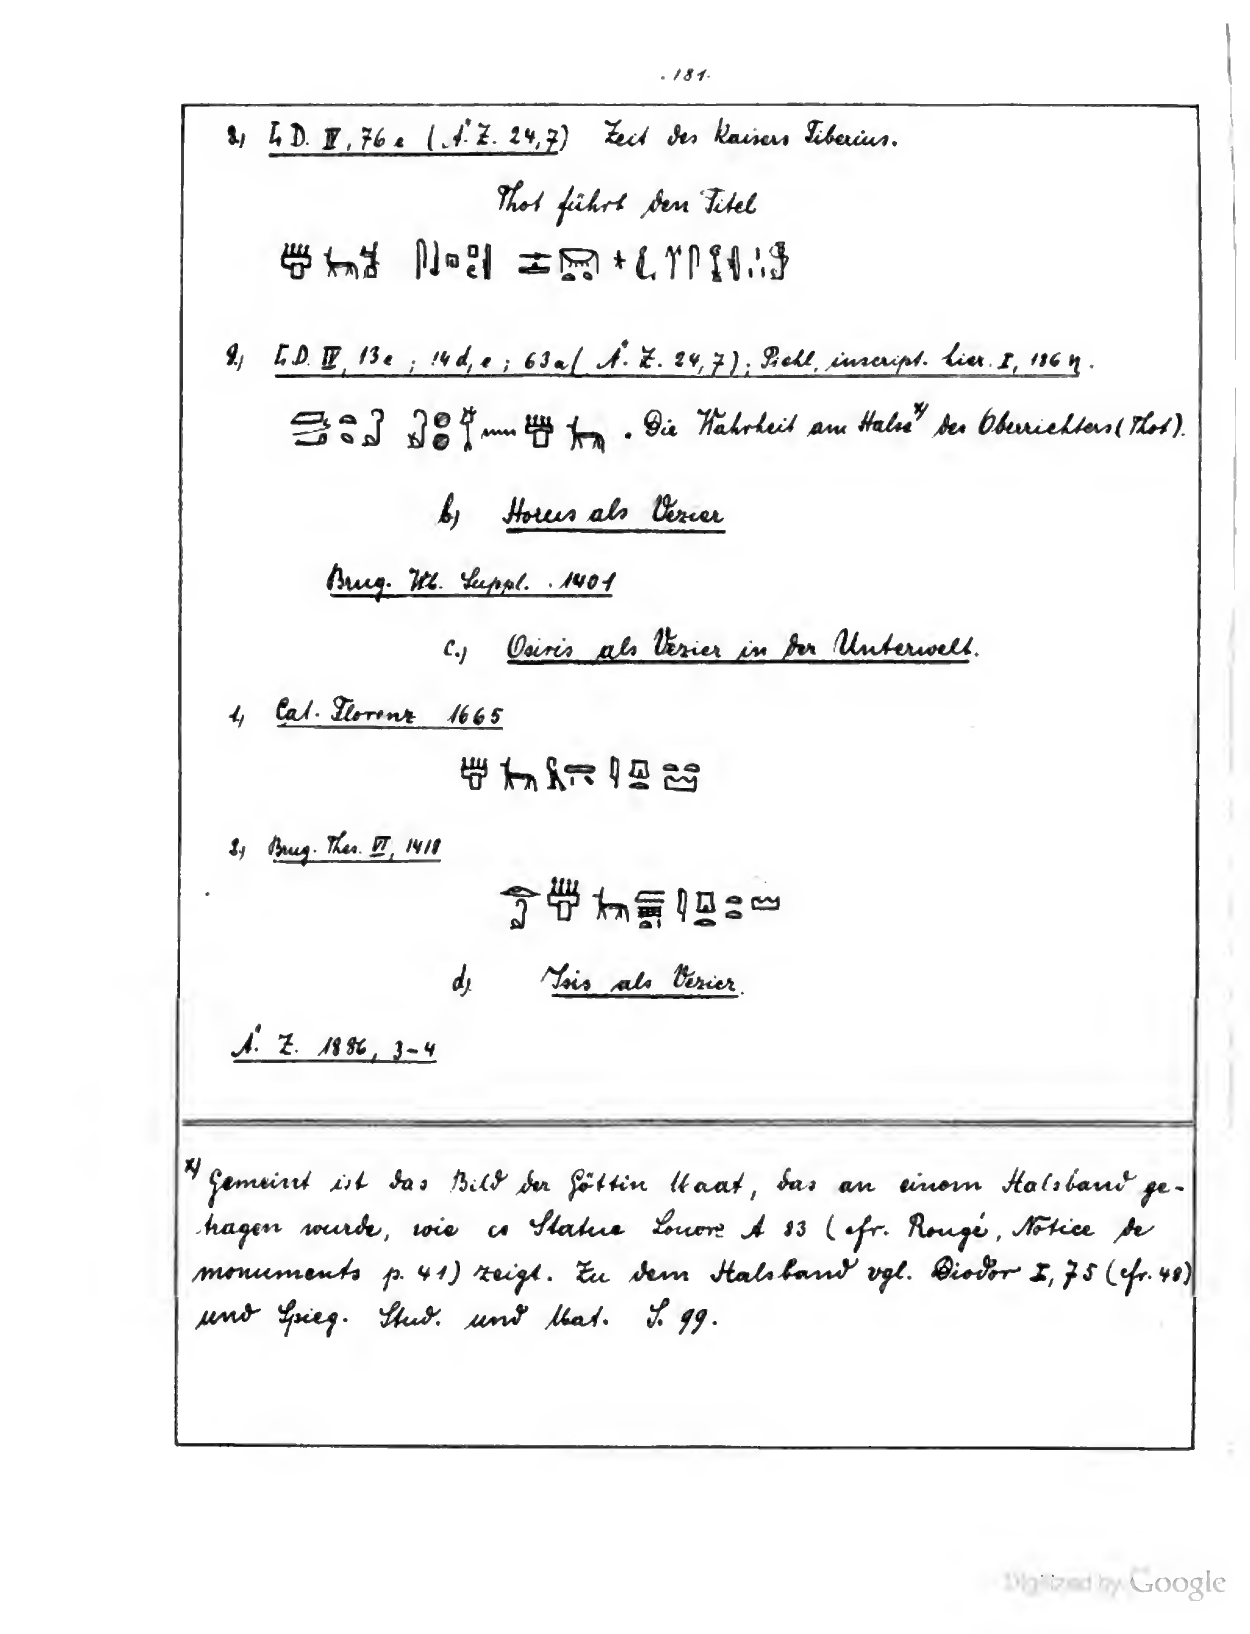 . 181.
2.) L. D. IV, 76 e (Ä. Z. 24,7) Zeit des Kaisers Tiberius.
Thot führt den Titel
2.) L. D. IV, 13 e ; 14 d, e ; 63 a ( Ä. Z. 24,7); Piehl, inscript. hier. I, 186 η.
. Die Wahrheit am Halse x) des Oberrichters (Thot).
b) Horus als Vezier
Brug. Wb. Suppl. . 1401
c.) Osiris als Vezier in der Unterwelt.
1, Cat. Florenz 1665
2, Brug. Thes. VI, 1418
d) Isis als Vezier.
Ä. Z. 1886, 3-4
x) Gemeint ist das Bild der Göttin Maat, das an einem Halsband ge-
hagen wurde, wie es Statue Louvre A 83 (cfr. Rougé, Notice de
monuments p. 41) zeigt. Zu dem Halsband vgl. Diodor I, 75 (cfr. 48)
und Spieg. Stud. und Mat. S. 99.
Digitized by Google